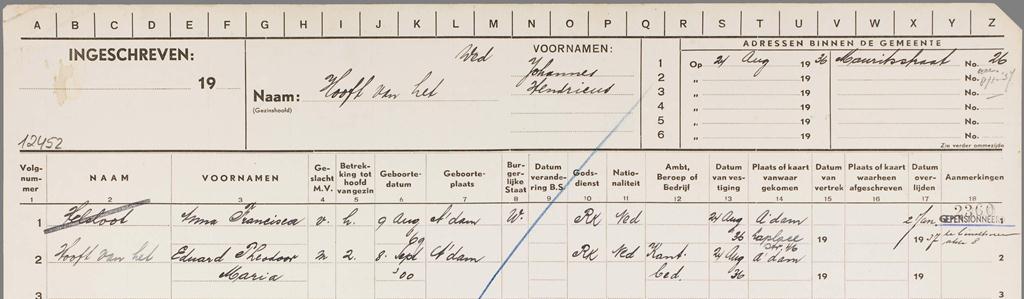 A B C D E F G H I J K L M N O P Q R S T U V W X Y Z
INGESCHREVEN:
19
12452
Naam: Hooft van het Wed
(Gezinshoofd)
VOORNAMEN:
Johannes
Hendricus
ADRESSEN BINNEN DE GEMEENTE
1 Op 24 Aug 1936 Mauritsstraat No. 26
2 „ 19 No.
3 „ 19 No.
4 „ 19 No.
5 „ 19 No.
6 „ 19 No.
Zie verder ommezijde
Volg-nummer NAAM VOORNAMEN Geslacht M.V. Betrekking tot hoofd van gezin Geboorte-datum Geboorte-plaats Burgerlijke Staat Datum verandering B.S. Godsdienst Nationaliteit Ambt, Beroep of Bedrijf Datum van vestiging Plaats of kaart vanwaar gekomen Datum van vertrek Plaats of kaart waarheen afgeschreven Datum overlijden Aanmerkingen
1 2 3 4 5 6 7 8 9 10 11 12 13 14 15 16 17 18
1 Helsloot Anna Francisca v. h. 9 Aug A'dam W. RK Ned 24 Aug A'dam 2 Jan 2360 1
69 36 Laplace str. 46 19 1937 GEPENSIONNEERD
2 Hooft van het Eduard Theodoor m 2. 8. Sept A'dam RK Ned Kant. 24 Aug A'dam 2
Maria '00 bed. 36 19 19
3 3